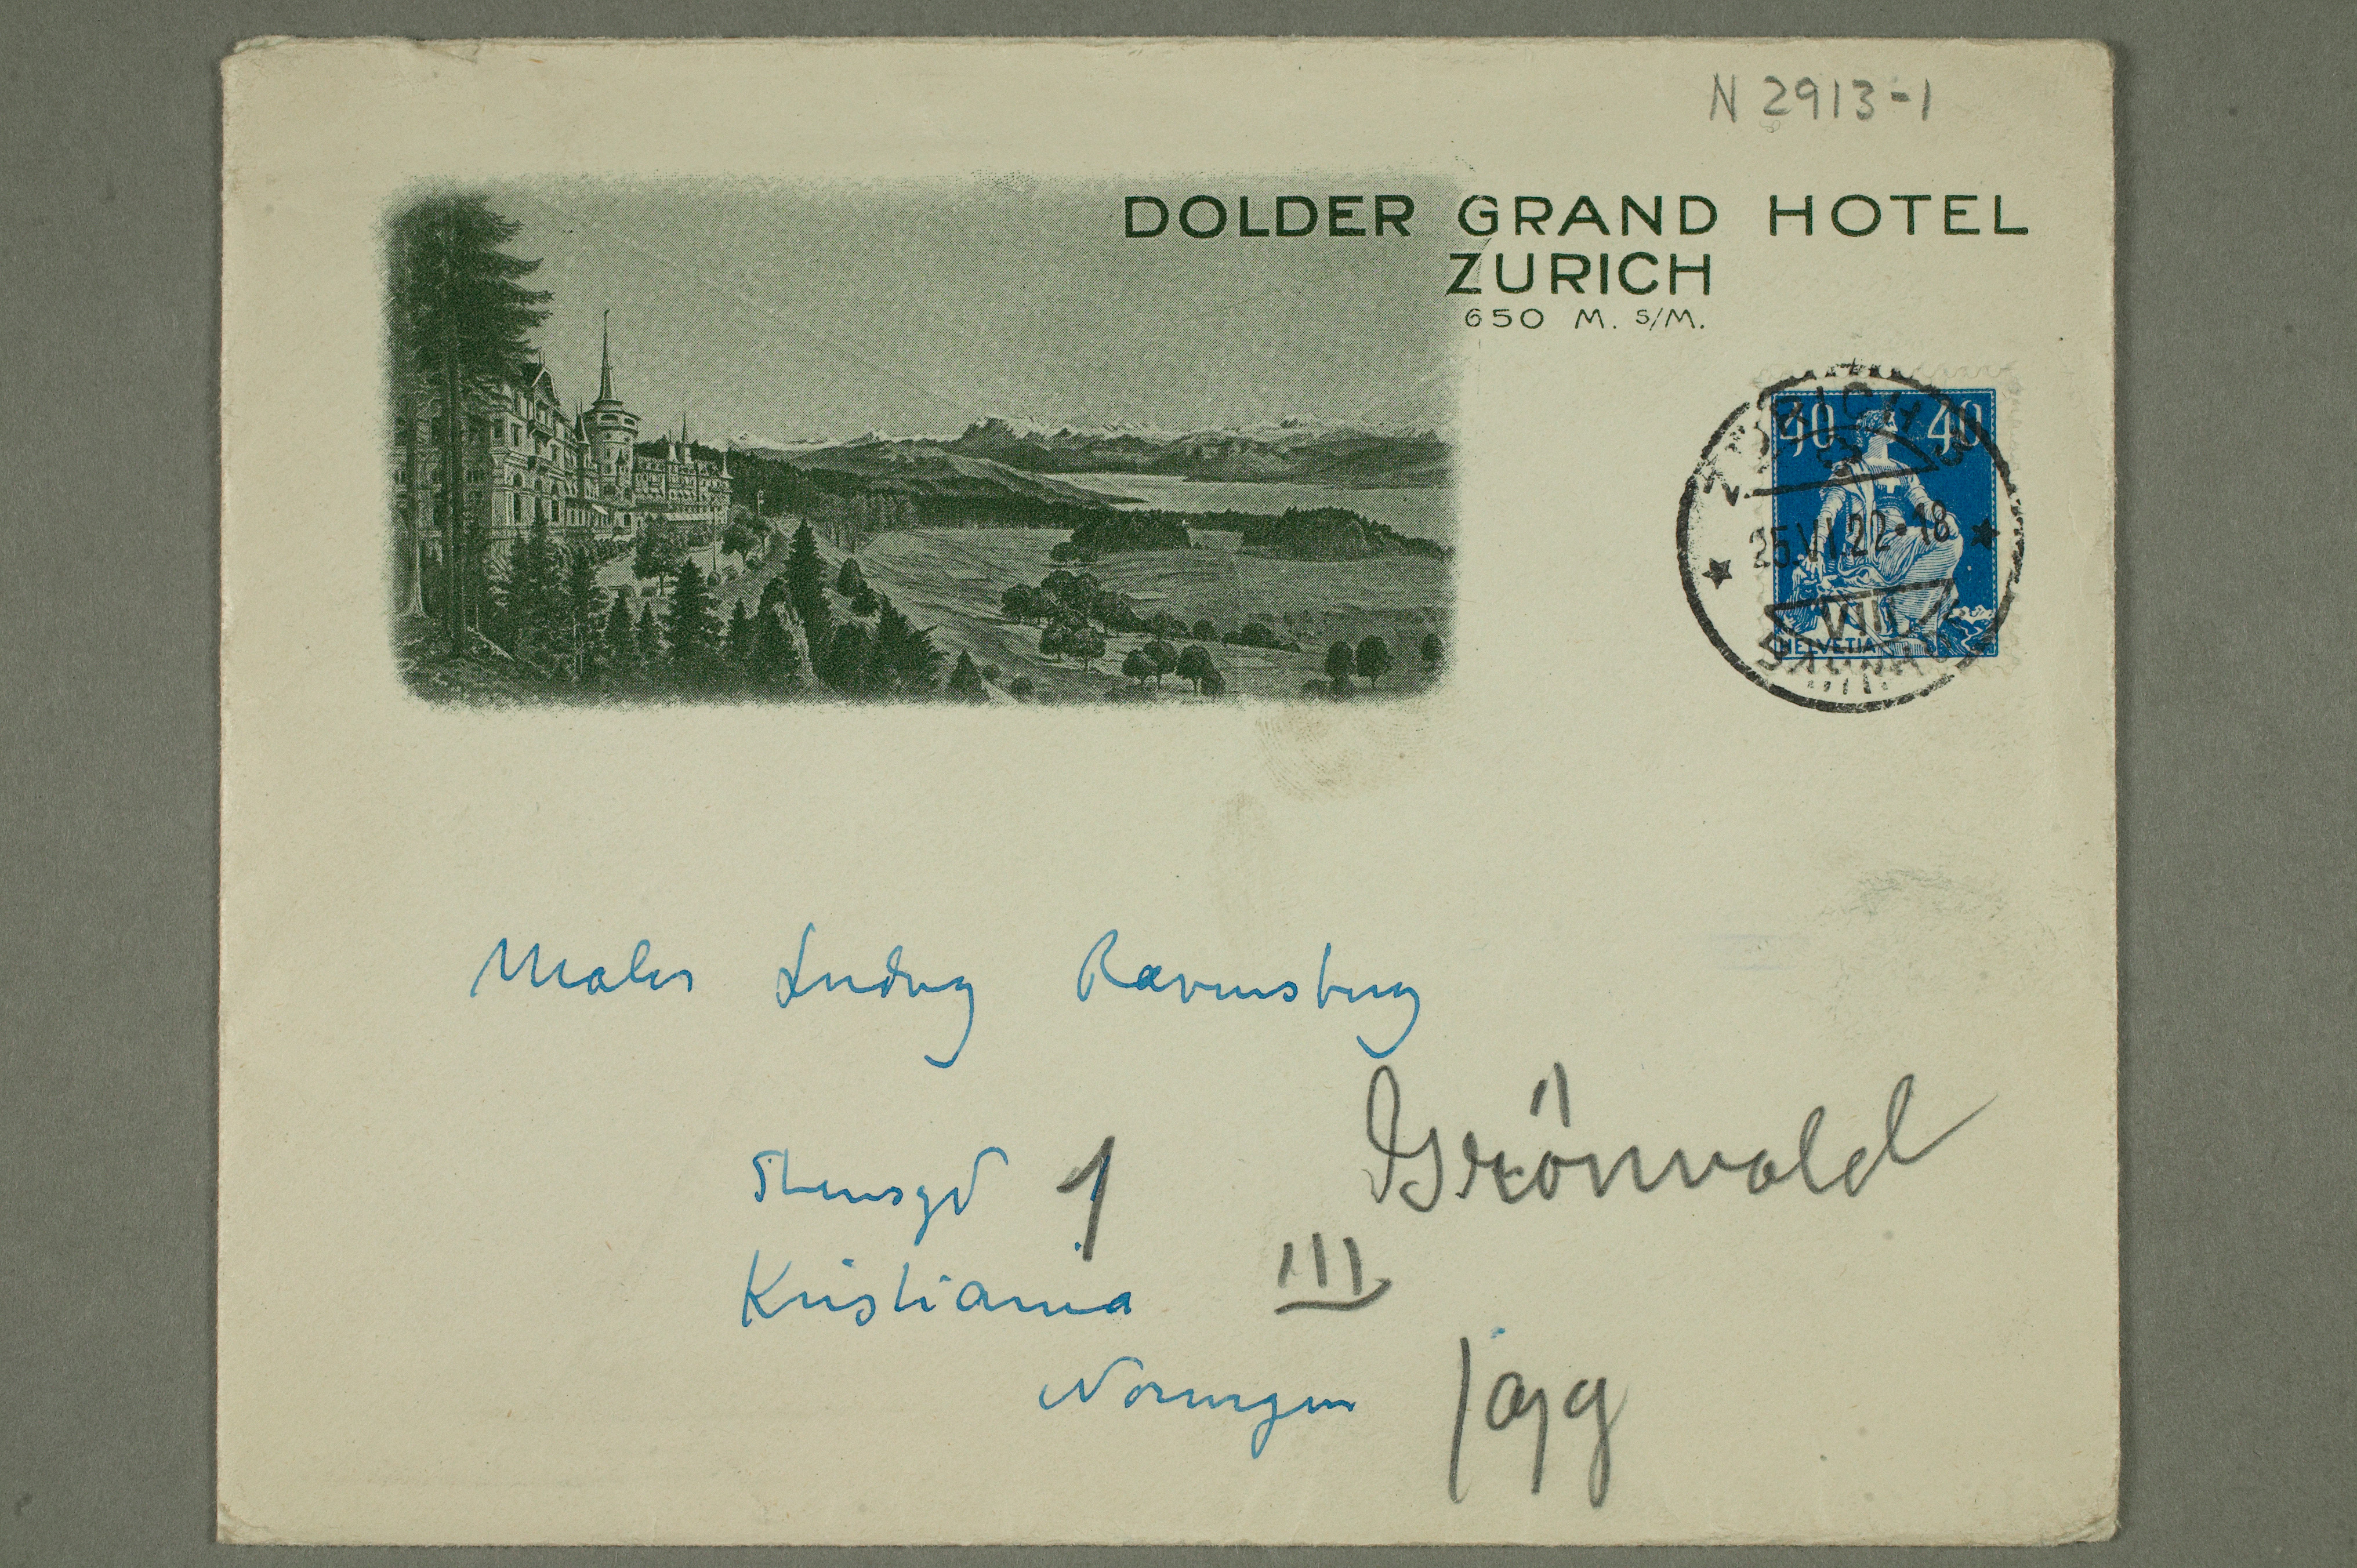 N 2913-1
DOLDER GRAND HOTEL
ZURICH
650 M. S/M.
40 40
ZÜRICH
25.VI.22-18
VIII
HELVETIA
Maler Ludvig Ravensberg
Stensgd 1
Grönvold
Kristiania III
Norwegen